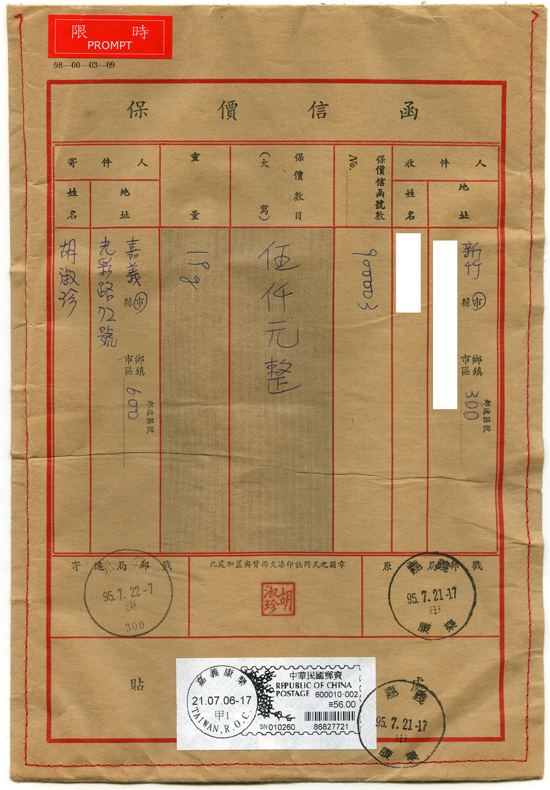 限時
PROMPT
98—00—03—09
保價信函
收件人
地址
新竹
縣市
鄉鎮
市區
300
郵遞區號
姓名
保價信函號數
No.
900003
保價數目
(大寫)
伍仟元整
重量
118g
寄件人
地址
嘉義
縣市
光彩路72號
鄉鎮
市區
600
郵遞區號
姓名
胡淑珍
寄遞局郵戳
此處加蓋與背面火漆印誌同式之圖章
原寄局郵戳
95.7.22-7
庚
300
胡淑珍
嘉義
95.7.21-17
甲
康樂
貼
處
嘉義康樂
21.07.06-17
甲1
TAIWAN, R.O.C.
中華民國郵資
REPUBLIC OF CHINA
POSTAGE 600010-002
=56.00
SN010260 86827721
嘉義
95.7.21-17
甲
康樂